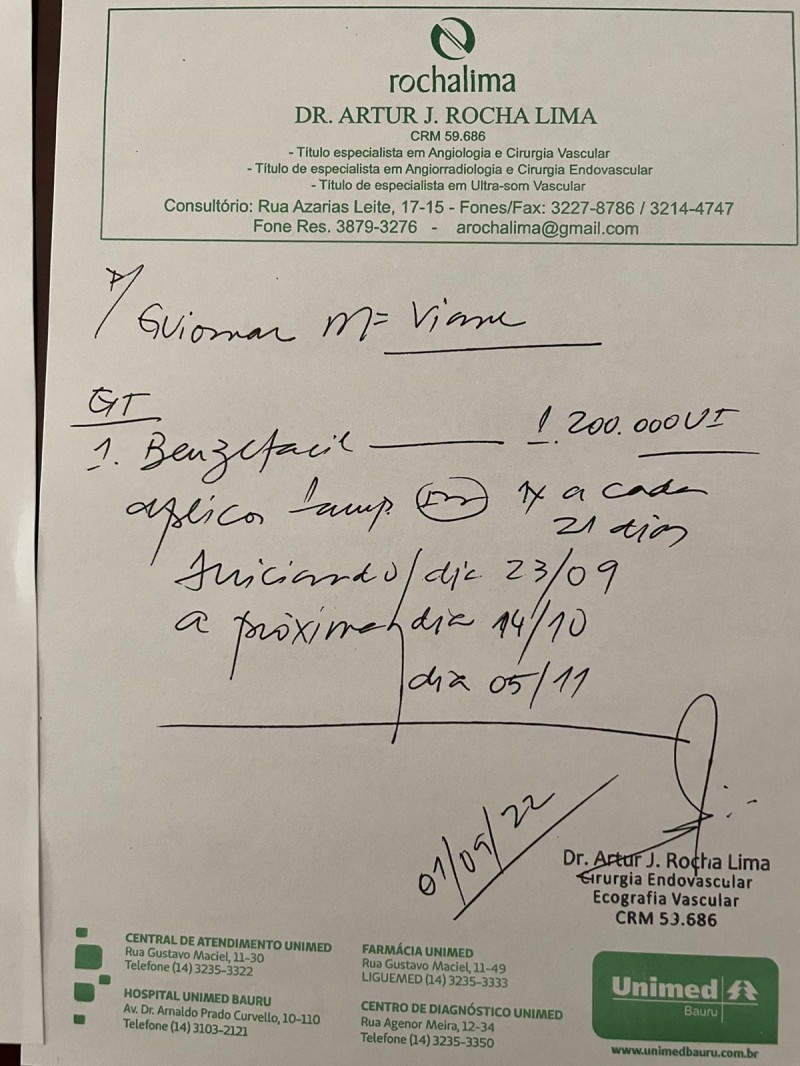 rochalima
DR. ARTUR J. ROCHA LIMA
CRM 59.686
- Título especialista em Angiologia e Cirurgia Vascular
- Título de especialista em Angiorradiologia e Cirurgia Endovascular
- Título de especialista em Ultra-som Vascular
Consultório: Rua Azarias Leite, 17-15 - Fones/Fax: 3227-8786 / 3214-4747
Fone Res. 3879-3276 - arochalima@gmail.com
P/
Guiomar Mª Viana
1. Benzetacil 1.200.000UI
aplicar 1 amp. IM 1x a cada
21 dias
Iniciando dia 23/09
a próxima dia 14/10
dia 05/11
01/09/22
Dr. Artur J. Rocha Lima
Cirurgia Endovascular
Ecografia Vascular
CRM 59.686
CENTRAL DE ATENDIMENTO UNIMED
Rua Gustavo Maciel, 11-30
Telefone (14) 3235-3322
HOSPITAL UNIMED BAURU
Av. Dr. Arnaldo Prado Curvello, 10-110
Telefone (14) 3103-2121
FARMÁCIA UNIMED
Rua Gustavo Maciel, 11-49
LIGUEMED (14) 3235-3333
CENTRO DE DIAGNÓSTICO UNIMED
Rua Agenor Meira, 12-34
Telefone (14) 3235-3350
Unimed
Bauru
www.unimedbauru.com.br